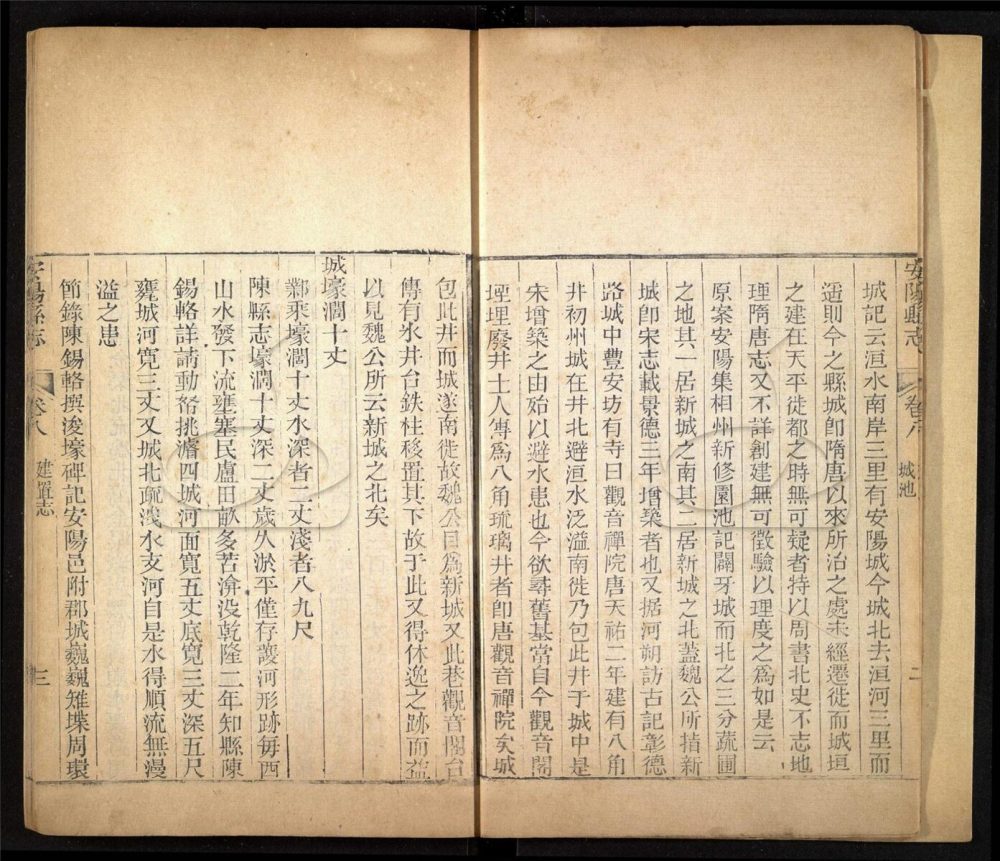 安陽縣志
卷八
城池
二
城記云洹水南岸三里有安陽城今城北去洹河三里而
遥則今之縣城卽隋唐以來所治之處未經遷徙而城垣
之建在天平徙都之時無可疑者特以周書北史不志地
理隋唐志又不詳創建無可徵驗以理度之爲如是云
原案安陽集相州新修園池記闢牙城而北之三分蔬圃
之地其一居新城之南其二居新城之北蓋魏公所指新
城卽宋志載景德三年增築者也又據河朔訪古記彰德
路城中豐安坊有寺曰觀音禪院唐天祐二年建有八角
井初州城在井北避洹水泛溢南徙乃包此井于城中是
宋增築之由始以避水患也今欲尋舊基當自今觀音閣
堙埋廢井土人傳爲八角琉璃井者卽唐觀音禪院矣城
包此井而城遂南徙故魏公目爲新城又此巷觀音閣台
傳有氷井台鉄柱移置其下故于此又得休逸之跡而益
以見魏公所云新城之北矣
城壕濶十丈
鄴乘壕濶十丈水深者二丈淺者八九尺
陳縣志壕濶十丈深二丈歲久淤平僅存護河形跡每西
山水發下流壅塞民廬田畝多苦渰没乾隆二年知縣陳
錫輅詳請動帑挑濬四城河面寬五丈底寬三丈深五尺
甕城河寬三丈又城北疏淺水支河自是水得順流無漫
溢之患
節錄陳錫輅撰浚壕碑記安陽邑附郡城巍巍雉堞周環
安陽縣志
卷八
建置志
三